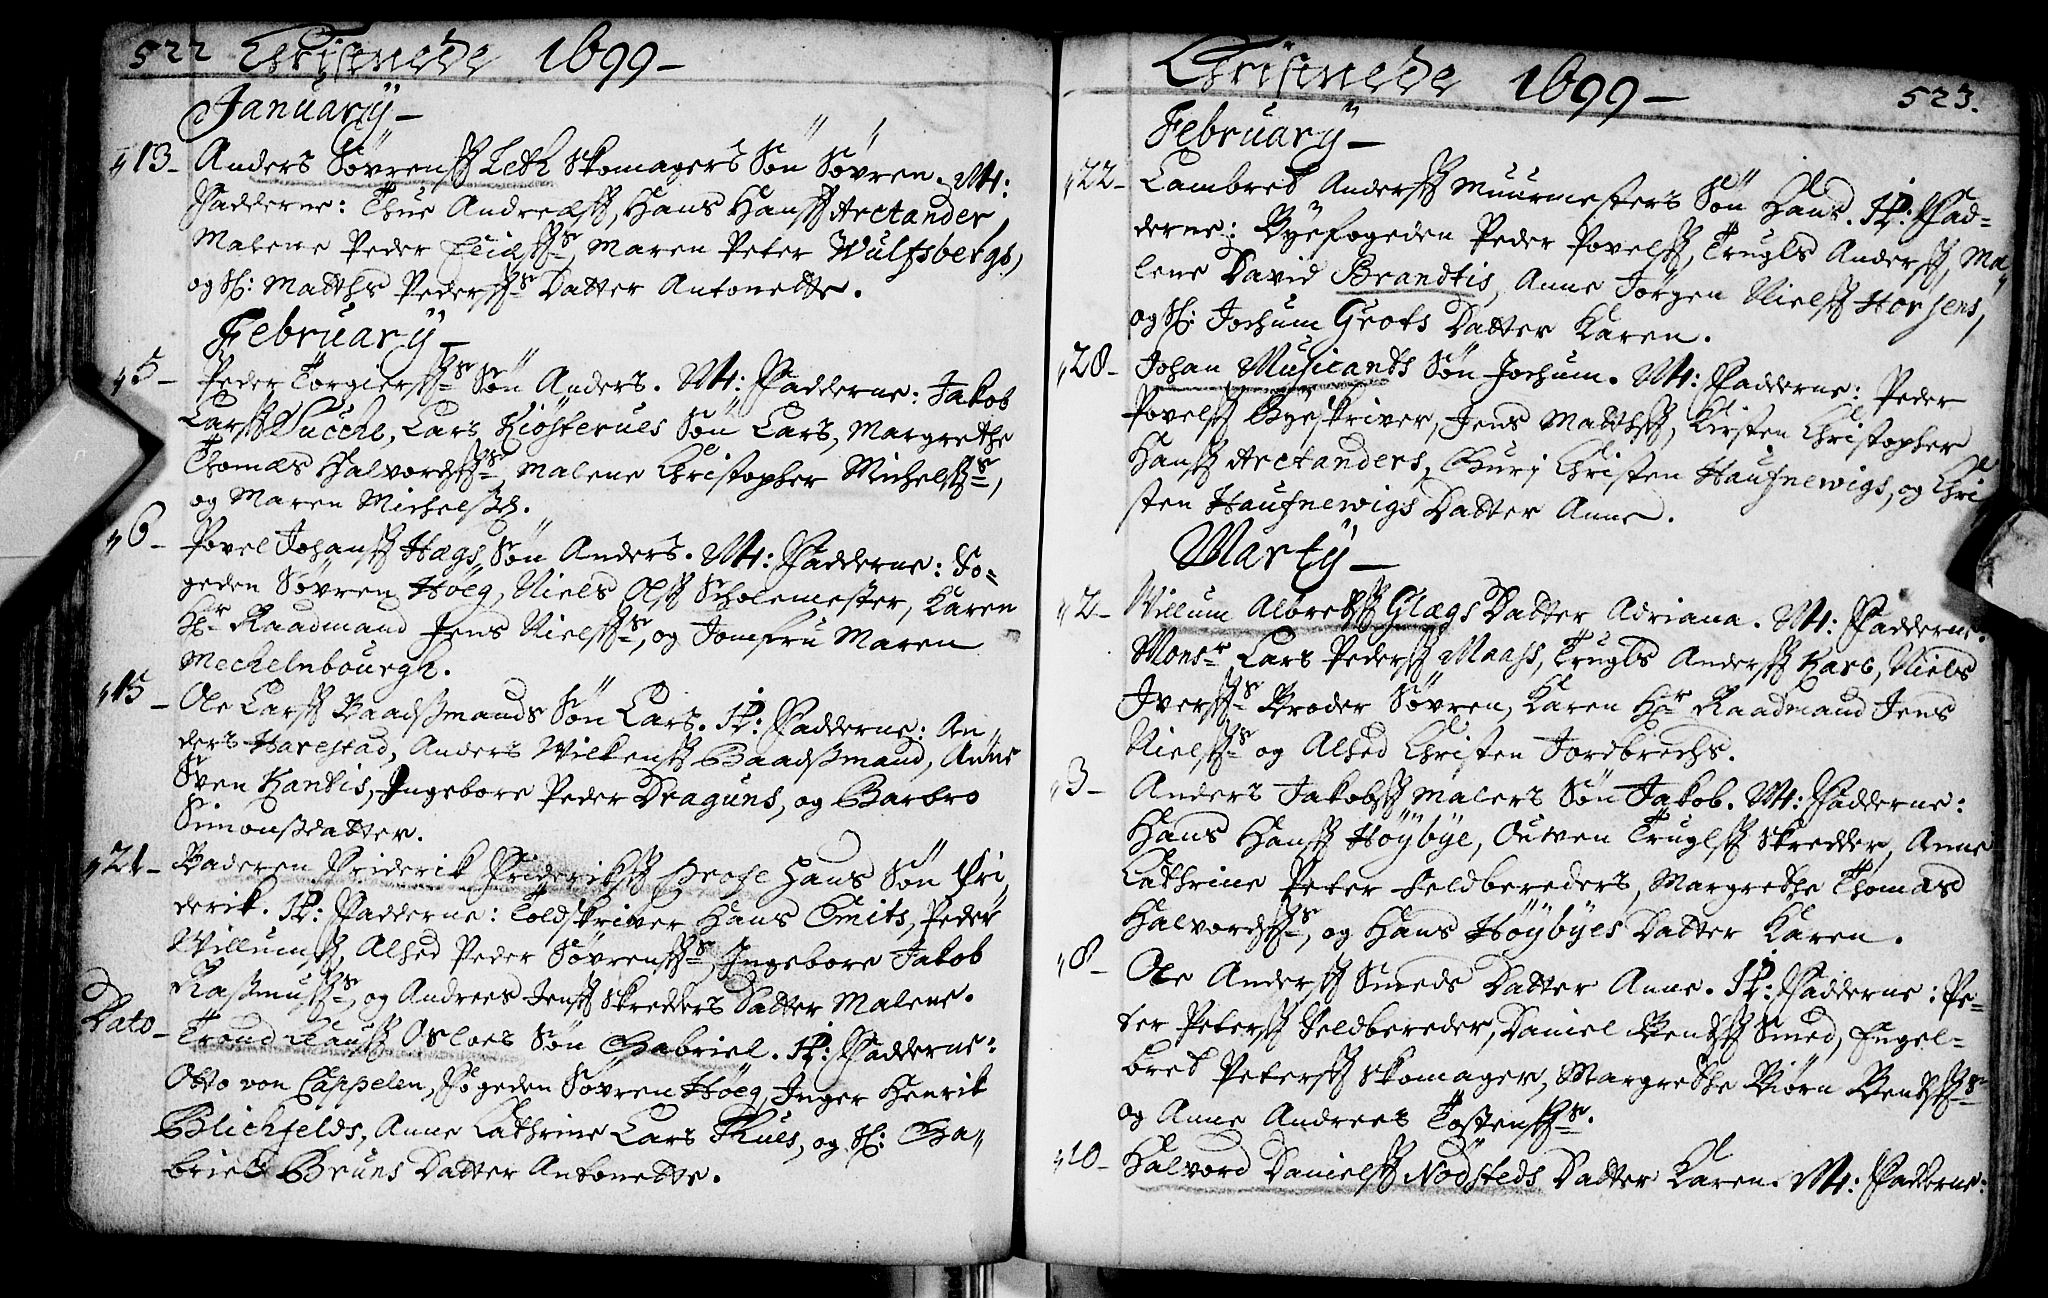 522 Christnede 1699–
January–
„13– Anders Søvrenss Leth Skomagers Søn Søvren. M:
Fadderne: Thue Andreæss, Hans Hanss Arctander,
Malene Peder, Maren Peter Wulfsbergs,
og Sl: Matths Pederss Datter Antonette.
February–
„5– Peder Torgierss Søn Anders. M: Fadderne: Jakob
Larss Succhl, Lars Kiøsterues Søn Lars, Margrethe
Thomæs Halvordss, Malene Christopher Michelss,
og Maren Michelsd.
„6– Povel Johanss Hægs Søn Anders. M: Fadderne: Fo=
geden Søvren Höeg, Niels Olss Scholemester, Karen
Hr Raadmand Jens Nielss, og Jomfru Maren
Mechelnbourgh.
„15– Ole Larss Baadsmands Søn Lars. P: Fadderne: An„
ders Harestad, Anders Wilkenss Baadsmand, Anne
Sven Kantis, Ingebore Peder Draguns, og Barbro
Simonsdatter.
„21– Baderen Friderik Friderikss Hans Søn Fri
derik. P: Fadderne: Toldskriver Hans Smits, Peder
Willumss, Alhed Peder Søvrenss, Ingebore Jakob
Rasmuss, og Andrees Jenss Skredders Datter Malene.
Dato– Trond Clauss Osloes Søn Gabriel. P: Fadderne:
Otto von Cappelen, Fogeden Søvren Höeg, Inger Henrik
Blichfelds, Anne Cathrine Lars Thues, og Sl: Ga„
briel Bruns Datter Antonette.
Christnede 1699– 523.
February–
„22– Lambret Anderss Muurmesters Søn Hans. P: Fad=
derne: Byefogeden Peder Povelss, Trugls Anderss, Ma„
lene David Brandtis, Anne Jörgen Nielss Horsens,
og Sl: Jochum Grots Datter Karen.
„28– Johan Musicants Søn Jochum. M: Fadderne: Peder
Povelss Byeskriver, Jens Matthss, Kirsten Christopher
Hanss Arctanders, Gurj Christen Haufnewigs, og Chri
sten Haufnewigs Datter Anne.
Marty–
„2– Willum Albretss Glægs Datter Adriana. M: Fadderne:
Monsr Lars Pederss Maass, Trugls Anderss Kars, Niels
Iverss Broder Søvren, Karen Hr Raadmand Jens
Nielss og Alhed Christen Jordbrechs.
„3– Anders Jakobss Malers Søn Jakob. M: Fadderne:
Hans Hanss Höybye, Ouwen Truglss Skredder, Anne
Cathrine Peter Feldbereders, Margrethe Thomæs
Halvordss, og Hans Höybyes Datter Karen.
„8– Ole Anderss Smeds Datter Anne. P: Fadderne: Pe=
ter Peterss Feldbereder, Daniel Bentss Smed, Engel=
bret Peterss Skomager, Margrethe Biørn Bentss
og Anne Andrees Tostenss.
„10– Halvord Danielss Nødsteds Datter Karen. M: Fadderne: